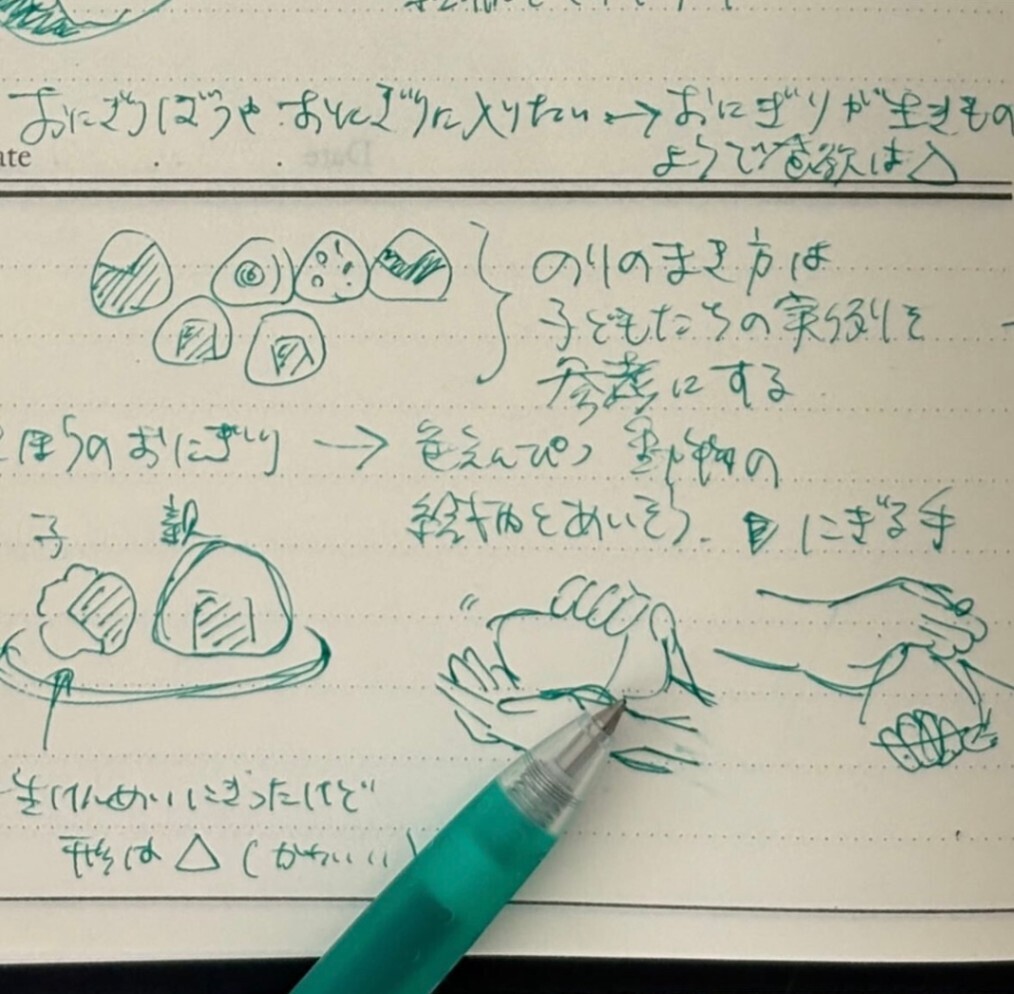 おにぎりぼうや おにぎりに入りたい → おにぎりが生きもの
ate
ようで食欲は△
のりのまき方は
子どもたちの実例を
参考にする
ほうのおにぎり → 色えんぴつ 動物の
絵柄とあいそう.
にぎる手
子 親
生けんめいにぎったけど
形は △ (かわいい)